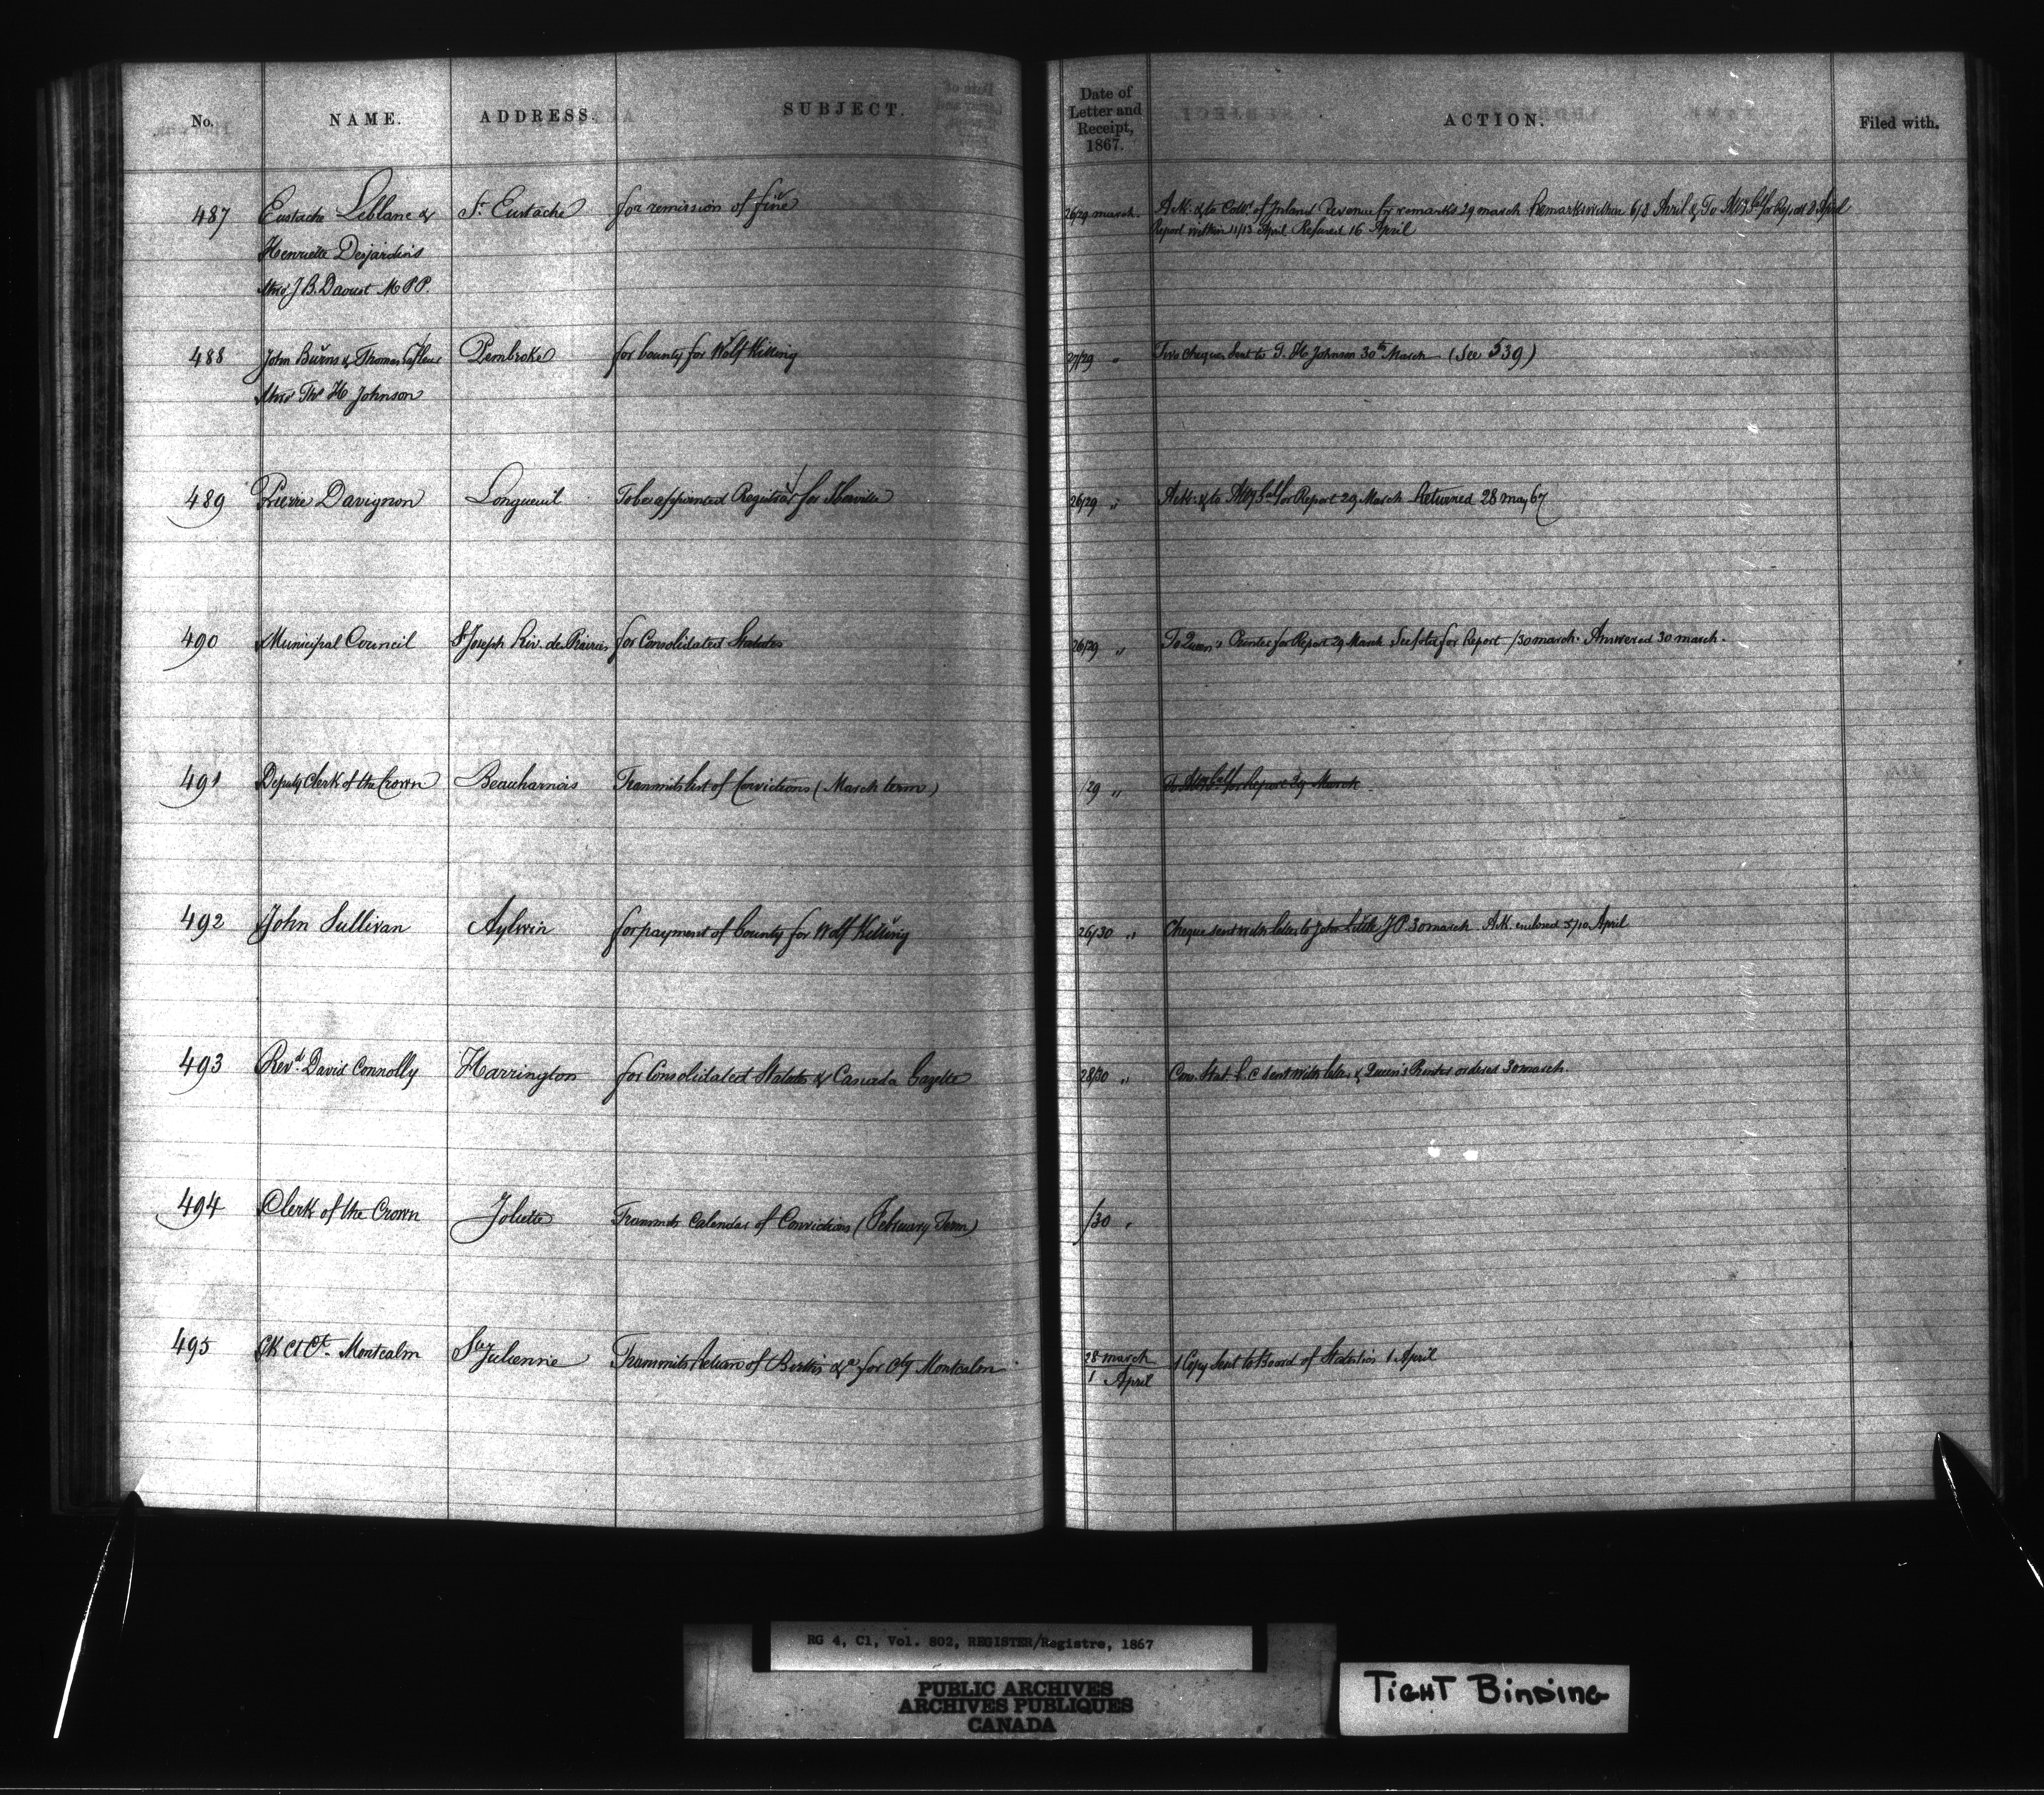 No. NAME. ADDRESS. SUBJECT Date of Letter and Receipt, 1867. ACTION. Filed with.
487 Eustache Leblanc & St. Eustache for remission of fine 26/29 march. Ack: & to Com.r of Inland Revenue for remarks 29 march Remarks within 6/8 April & To Atty Gal for Report 8 April
Report within 11/13 April Refused 16 April
Henriette Desjardins
thro' J. B. Daoust M P P.
488 John Burns & Thomas Pembroke for bounty for Wolf Killing 27/29 " Two cheques sent to T. H. Johnson 30th March (See 539)
thro' Ths H Johnson
489 Pierre Davignon Longueuil To be appointed Registrar for Iberville 26/29 " Ack: & to Atty Gal for Report 29 March Returned 28 may 67
490 Municipal Council St Joseph Riv. des Prairies for Consolidated Statutes 26/29 " To Queen's Printer for Report 29 March See for Report /30 march. Answered 30 march.
491 Deputy Clerk of the Crown Beauharnois Transmits list of Convictions (March term) /29 " To Atty Gal for Report 29 March
492 John Sullivan Aylwin for payment of bounty for Wolf Killing 26/30 " Cheque sent with letter to John Little J P. 30 march Ack. enclosed 5/10 April
493 Revd. David Connolly Harrington for Consolidated Statutes & Canada Gazette 28/30 " Con. Stat. L. C sent with letter & Queen's Printer ordered 30 march.
494 Clerk of the Crown Joliette Transmits Calendar of Convictions (February Term) /30 "
495 Ck Ct Ct. Montcalm Ste Julienne Transmits Return of Births &a for Cty Montcalm 28 march 1 Copy sent to Board of Statistics 1 April
1 April
RG 4, C1, Vol. 802, REGISTER/Registre, 1867
PUBLIC ARCHIVES
ARCHIVES PUBLIQUES
CANADA
TIGHT BINDING